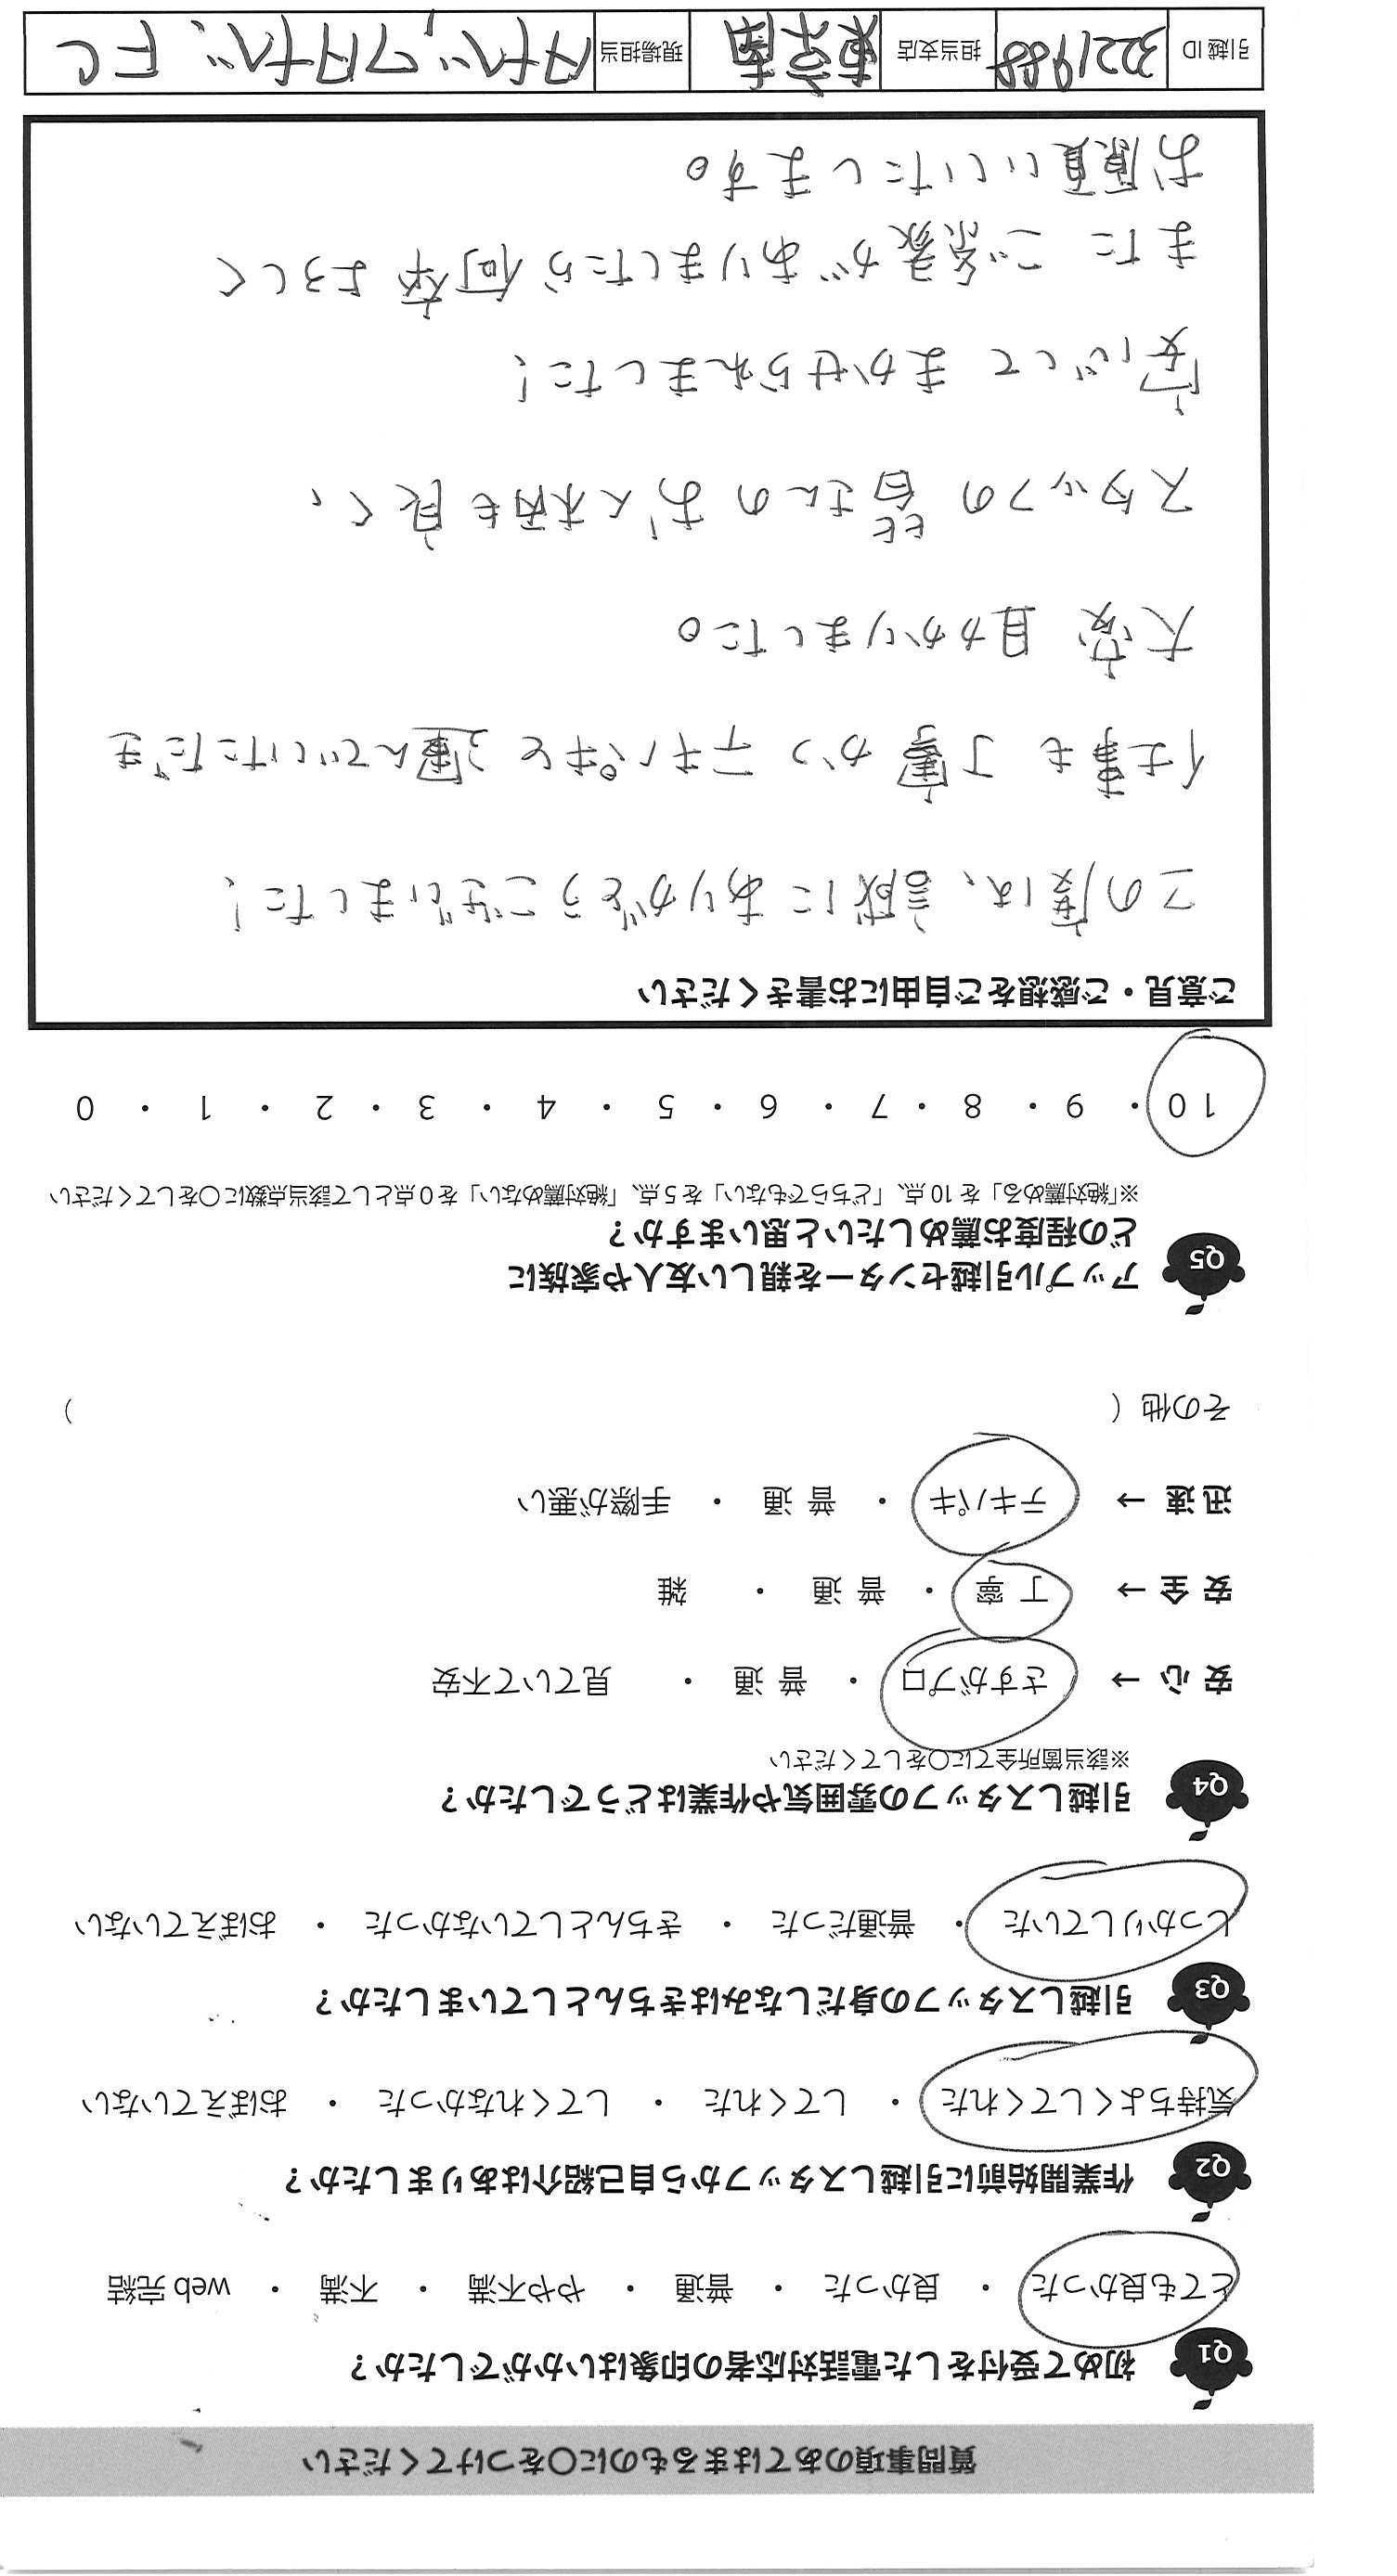 質問事項のあてはまるものに〇をつけてください
Q1 初めて受付をした電話対応者の印象はいかがでしたか？
とても良かった ・ 良かった ・ 普通 ・ やや不満 ・ 不満 ・ web 完結
Q2 作業開始前に引越しスタッフから自己紹介はありましたか？
気持ちよくしてくれた ・ してくれた ・ してくれなかった ・ おぼえていない
Q3 引越しスタッフの身だしなみはきちんとしていましたか？
しっかりしていた ・ 普通だった ・ きちんとしていなかった ・ おぼえていない
Q4 引越しスタッフの雰囲気や作業はどうでしたか？
※該当箇所全てに〇をしてください
安 心 → さすがプロ ・ 普 通 ・ 見ていて不安
安 全 → 丁 寧 ・ 普 通 ・ 雑
迅 速 → テキパキ ・ 普 通 ・ 手際が悪い
その他（ ）
Q5 アップル引越センターを親しい友人や家族に
どの程度お薦めしたいと思いますか？
※「絶対薦める」を 10 点、「どちらでもない」を 5 点、「絶対薦めない」を 0 点として該当点数に〇をしてください
10 ・ 9 ・ 8 ・ 7 ・ 6 ・ 5 ・ 4 ・ 3 ・ 2 ・ 1 ・ 0
ご意見・ご感想をご自由にお書きください
この度は、誠にありがとうございました！
仕事も丁寧かつテキパキと運んでいただき
大変助かりました。
スタッフの皆さんのお人柄も良く、
安心して まかせられました！
また ご縁がありましたら何卒よろしく
お願いいたします。
引越 ID 3221988 担当支店 東京南 現場担当